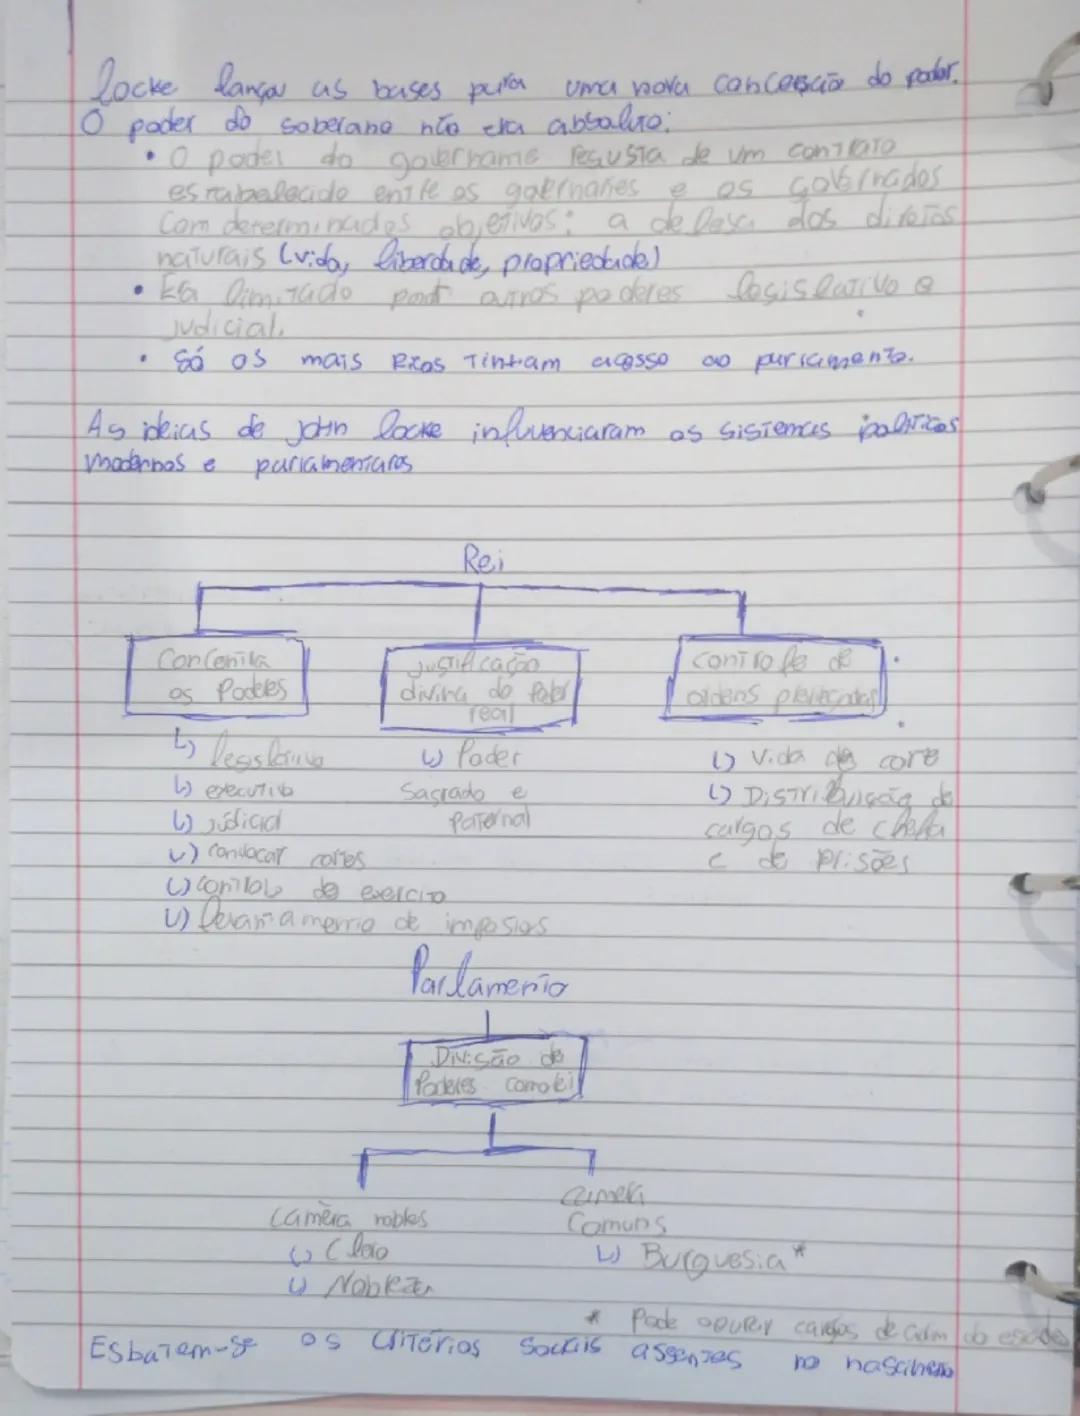 Locke lançou as bases para uma nova conceção do poder.
O poder do soberano não era absoluto:
• O poder do governante resusta de um contrato
estabelecido entre os governantes e os governados
com determinados objetivos: a defesa dos direitos
naturais (vida, liberdade, propriedade)
• Era limitado por outros poderes legislativo e
judicial.
• Só os mais ricos tinham acesso ao parlamento.
As ideias de john locke influenciaram os sistemas políticos
modernos e parlamentares
Rei
Concentra
os Poderes
Justificação
divina do Poder
real
Controle de
ordens
↳ legislativo
↳ executivo
↳ júdicial
↳ convocar cortes
↳ controlo do exercito
↳ levantamento de impostos
↳ Poder
Sagrado e
Paternal
↳ Vida de corte
↳ Distribuição de
cargos de chefia
e de prisões
Parlamento
Divisão de
Poderes com o rei
Camêra nobles
↳ Clero
↳ Nobreza
camera
Comuns
↳ Burguesia *
* Pode cargos de do estado
Esbatem-se os critérios sociais assentes no nascimento